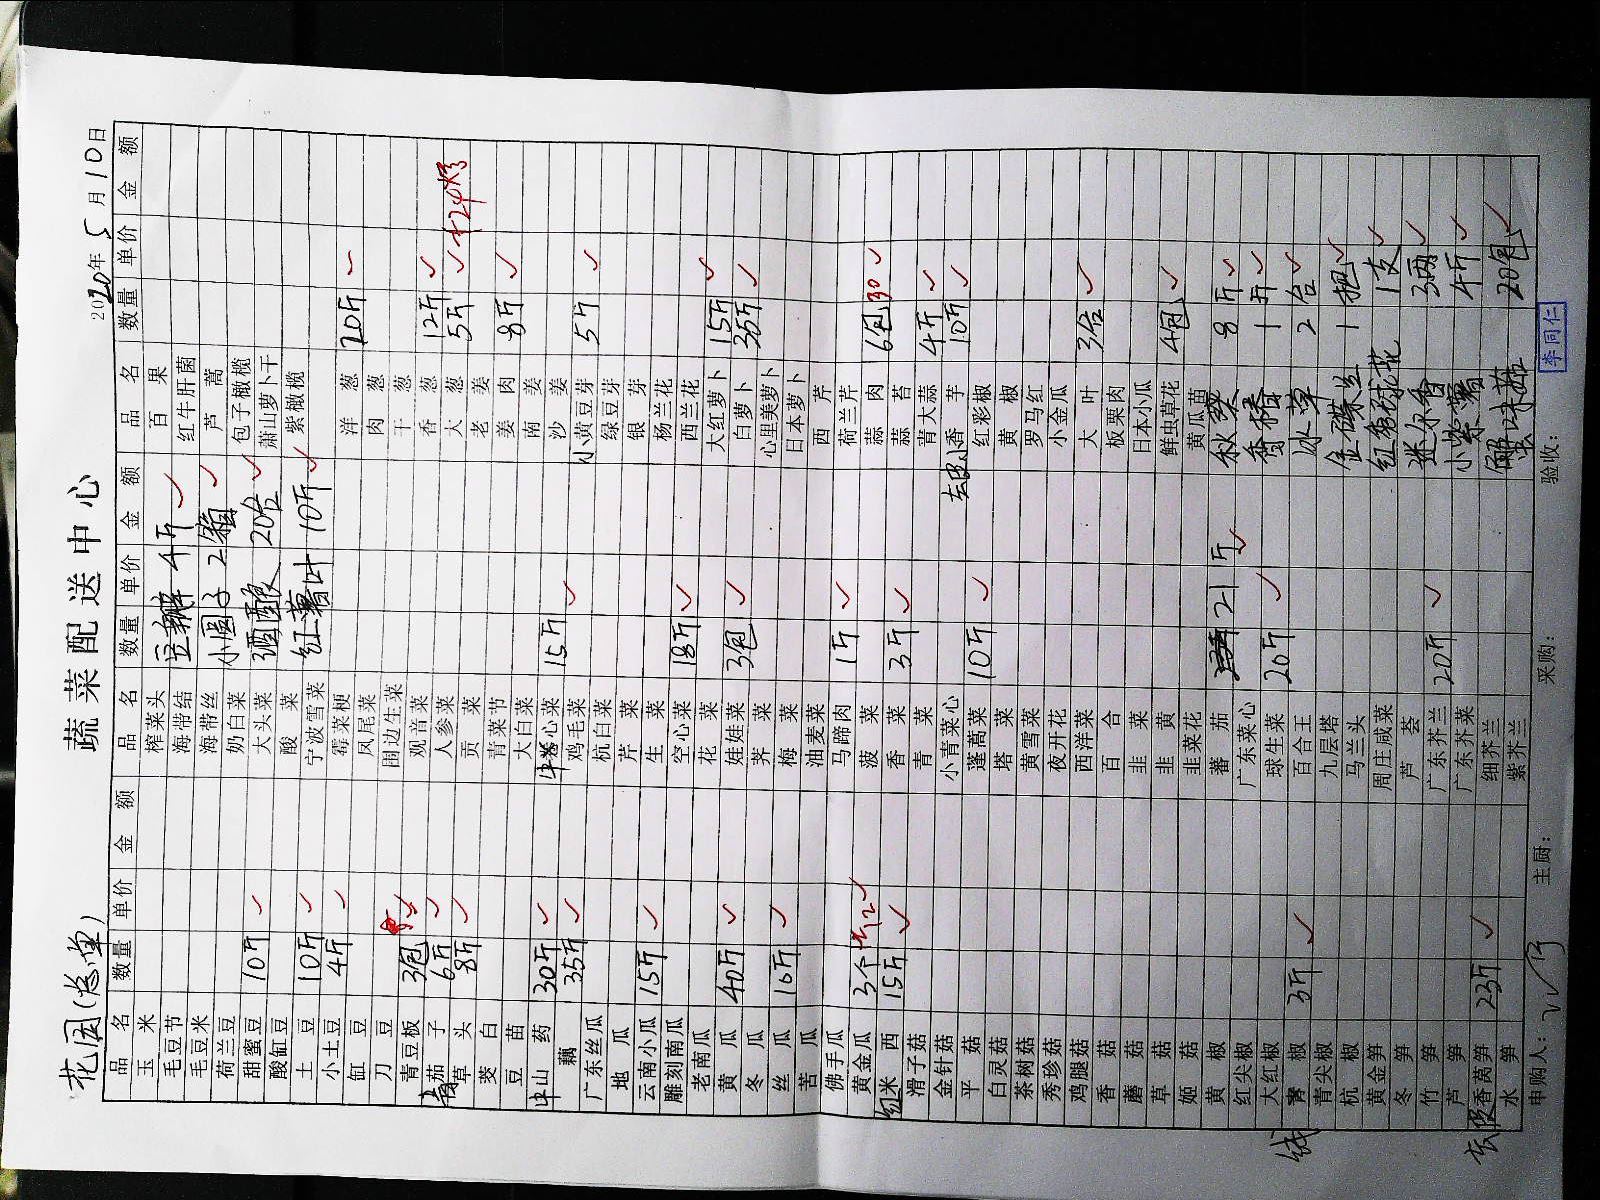 蔬菜配送中心
花园(总堂) 2020年5月10日
品名 数量 单价 金额 品名 数量 单价 金额 品名 数量 单价 金额
玉米 榨菜头 百果
毛豆节 海带结 豆瓣 4斤 红牛肝菌
毛豆米 海带丝 芦蒿
荷兰豆 奶白菜 小圆子 2箱 包子橄榄
甜蜜豆 10斤 大头菜 萧山萝卜干
酸缸豆 酸菜 酒酿 20台 紫橄榄
土豆 10斤 宁波雪菜 红薯叶 10斤
小土豆 4斤 霉菜梗 洋葱 20斤
缸豆 凤尾菜 肉葱
刀豆 围边生菜 干葱
青豆板 3包 观音菜 香葱 12斤
青茄子 6斤 人参菜 大葱 5斤
草头 8斤 贡菜 老姜
茭白 青菜节 姜肉 8斤
豆苗 大白菜 南姜
牛山药 30斤 牛心菜 15斤 沙姜
藕 35斤 鸡毛菜 小黄豆芽 5斤
广东丝瓜 杭白菜 绿豆芽
地瓜 芹菜 银芽
云南小瓜 15斤 生菜 杨兰花
雕刻南瓜 空心菜 18斤 西兰花
老南瓜 花菜 大红萝卜 15斤
黄瓜 40斤 娃娃菜 3包 白萝卜 35斤
冬瓜 荠菜 心里美萝卜
丝瓜 10斤 梅菜 日本萝卜
苦瓜 油麦菜 西芹
佛手瓜 马蹄肉 1斤 荷兰芹
黄金瓜 3个 菠菜 蒜肉 6包 30
红米西 15斤 香菜 3斤 蒜苔
滑子菇 青菜 青大蒜 4斤
金针菇 小青菜心 去皮小香芋 10斤
平菇 蓬蒿菜 10斤 红彩椒
白灵菇 塔菜 黄椒
茶树菇 黄雪菜 罗马红
秀珍菇 夜开花 小金瓜
鸡腿菇 西洋菜 大叶 3台
香菇 百合 板栗肉
蘑菇 韭菜 日本小瓜
草菇 韭黄 鲜虫草花 4包
姬菇 韭菜花 黄瓜苗
黄椒 蕃茄 21斤 秋葵 8斤
红尖椒 广东菜心 香椿 1斤
大红椒 球生菜 20斤 冰草 2台
青椒 3斤 百合王 金碟兰 1把
青尖椒 九层塔 红绣球花 1支
杭椒 马兰头 迷尔香 3两
黄金笋 周庄咸菜 小紫薯 4斤
冬笋 芦荟 蟹味菇 20包
竹笋 广东芥兰 20斤
芦笋 广东芥菜
去皮香莴笋 23斤 细芥兰
水笋 紫芥兰
申购人: 主厨: 采购: 验收: 李同仁